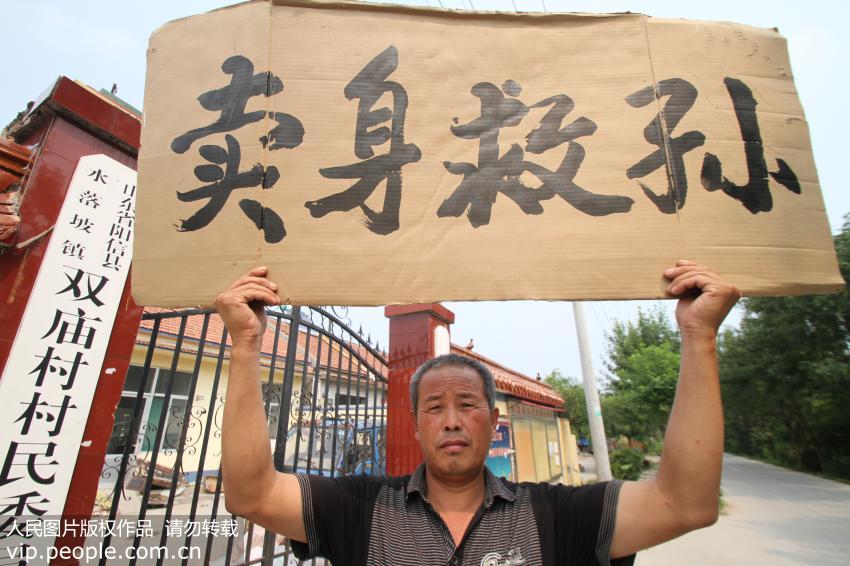 卖身救孙
山东省阳信县
水落坡镇
双庙村村民委
人民图片版权作品 请勿转载
vip.people.com.cn